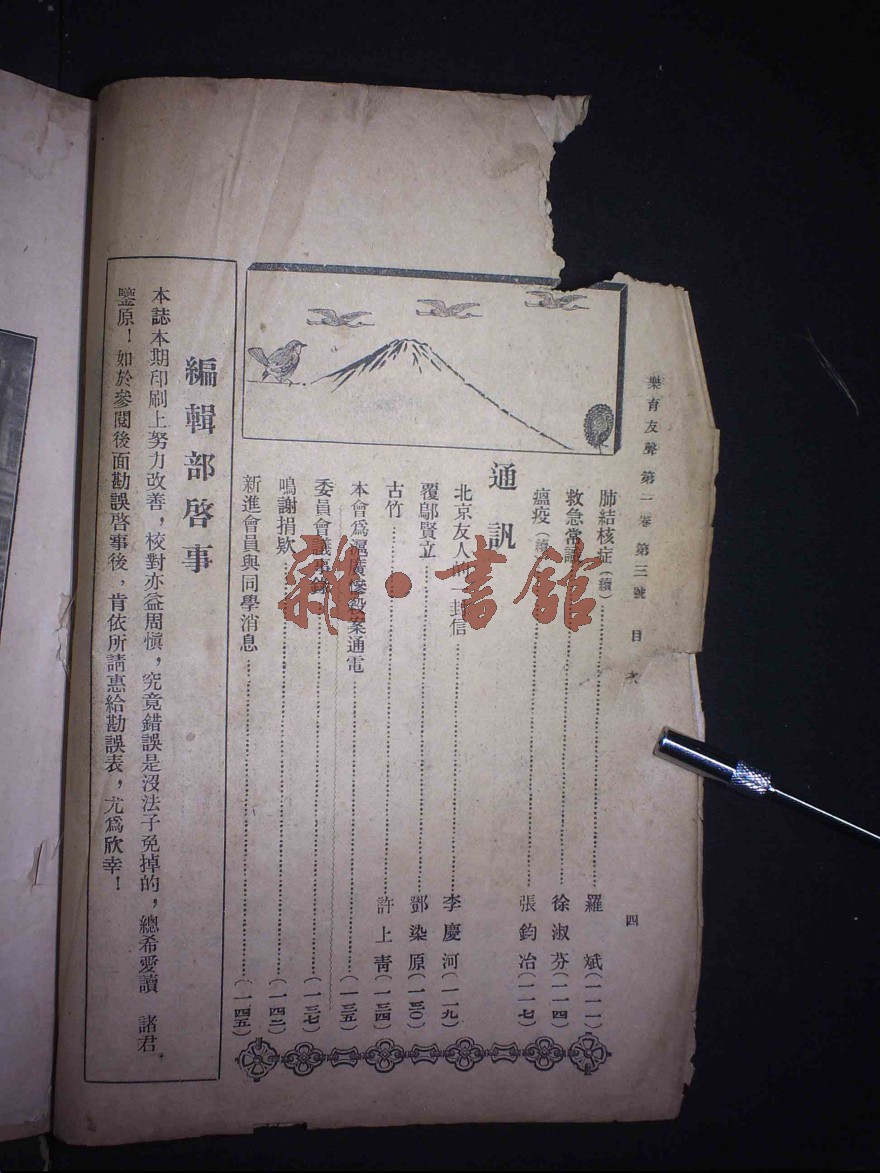 樂育友聲 第一卷 第三號 目次
四
肺結核症(續)……羅斌(一一一)
救急常識……徐淑芬(一一四)
瘟疫(續)……張鈞冶(一一七)
通訊
北京友人的一封信……李慶河(一一九)
覆鄔賢立……鄧染原(一三〇)
古竹……許上靑(一三四)
本會爲滬廣慘殺案通電……(一三五)
委員會議事錄……(一三七)
鳴謝捐欵……(一四二)
新進會員與同學消息……(一四五)
編輯部啓事
本誌本期印刷上努力改善,校對亦益周愼,究竟錯誤是沒法子免掉的,總希愛讀 諸君
鑒原!如於參閱後面勘誤啓事後,肯依所請惠給勘誤表,尤爲欣幸!
雜·書館